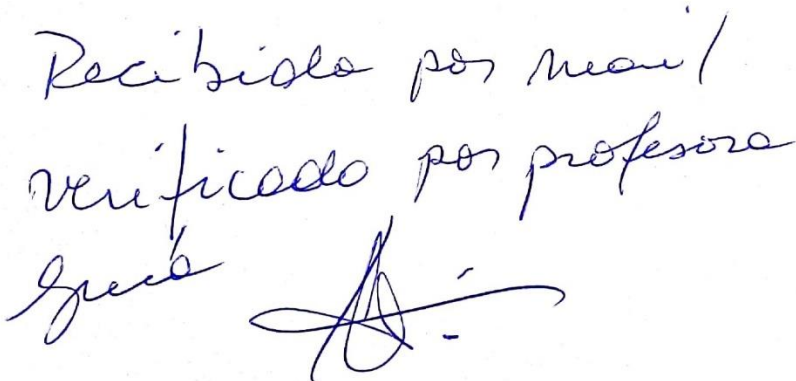 Recibido por mail
verificado por profesora
Guía